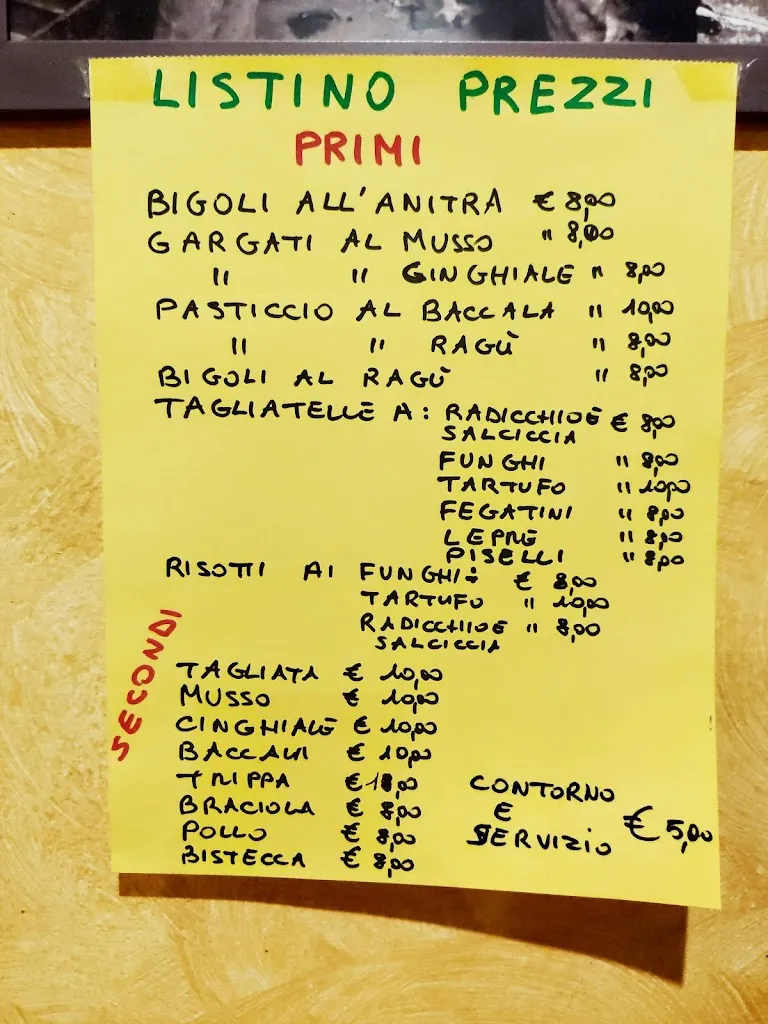 LISTINO PREZZI
PRIMI
BIGOLI ALL'ANITRA € 8,00
GARGATI AL MUSSO " 8,00
" " CINGHIALE " 8,00
PASTICCIO AL BACCALA " 10,00
" " RAGÙ " 8,00
BIGOLI AL RAGÙ " 8,00
TAGLIATELLE A: RADICCHIO E € 8,00
SALCICCIA
FUNGHI " 8,00
TARTUFO " 10,00
FEGATINI " 8,00
LEPRE " 8,00
PISELLI " 8,00
RISOTTI AI FUNGHI: € 8,00
TARTUFO " 10,00
RADICCHIO E " 8,00
SALCICCIA
SECONDI
TAGLIATA € 10,00
MUSSO € 10,00
CINGHIALE € 10,00
BACCALA € 10,00
TRIPPA € 10,00
BRACIOLA € 8,00
POLLO € 8,00
BISTECCA € 8,00
CONTORNO
E
SERVIZIO € 5,00